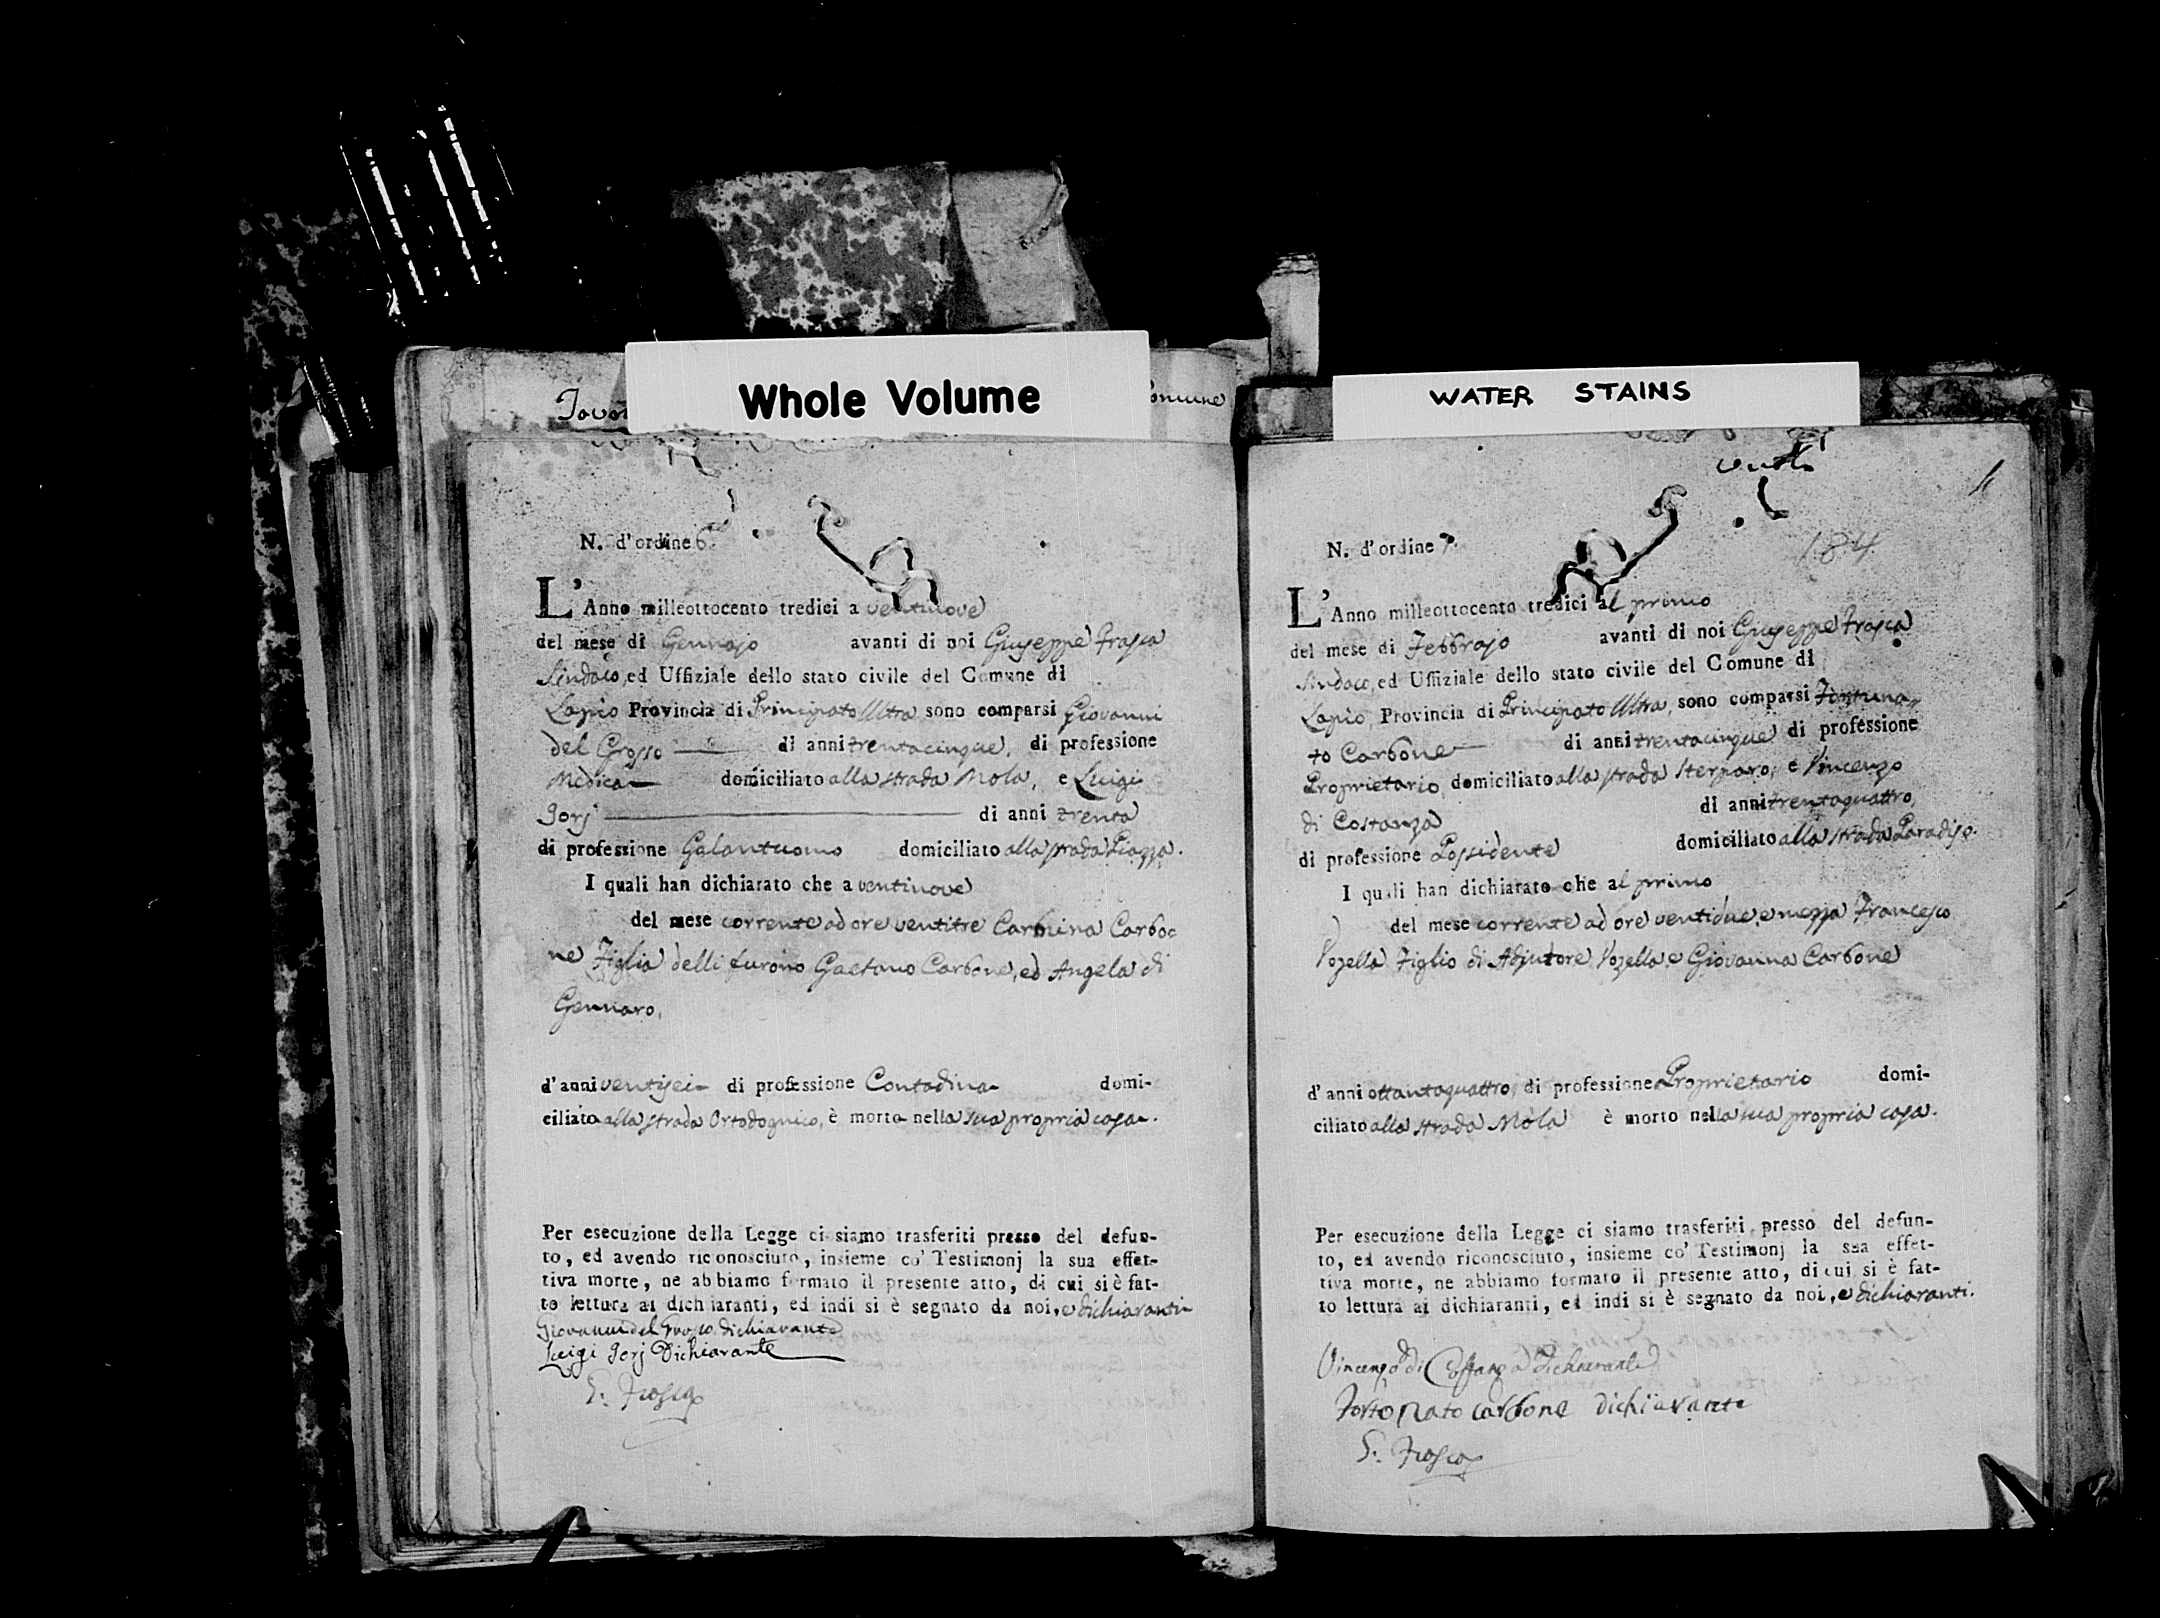 Whole Volume
omune
N. d'ordine 6.
L'Anno milleottocento tredici a ventinove
del mese di Gennajo avanti di noi Giuseppe Frasca
Sindaco, ed Uffiziale dello stato civile del Comune di
Lapio Provincia di Principato Ultra, sono comparsi Giovanni
del Grosso di anni trentacinque, di professione
Medica domiciliato alla strada Mola, e Luigi
Jorj di anni trenta
di professione Galantuomo domiciliato alla strada Piazza.
I quali han dichiarato che a ventinove
del mese corrente ad ore ventitre Carmina Carbo
ne Figlia delli furono Gaetano Carbone, ed Angela di
Gennaro,
d'anni ventisei di professione Contadina domi-
ciliata alla strada è morta nella sua propria casa.
Per esecuzione della Legge ci siamo trasferiti presso del defun-
to, ed avendo riconosciuto, insieme co' Testimonj la sua effet-
tiva morte, ne abbiamo formato il presente atto, di cui si è fat-
to lettura ai dichiaranti, ed indi si è segnato da noi, e dichiaranti
Giovanni del Grosso dichiarante
Luigi Jorj Dichiarante
G. Frasca
WATER STAINS
184
N. d'ordine 7.
L'Anno milleottocento tredici al primo
del mese di Febbrajo avanti di noi Giuseppe Frasca
Sindaco, ed Uffiziale dello stato civile del Comune di
Lapio, Provincia di Principato Ultra, sono comparsi Fortuna
to Carbone di anni trentacinque di professione
Proprietario, domiciliato alla strada Sterparo, e Vincenzo
di Costanza di anni trentaquattro,
di professione Possidente domiciliato alla strada Paradiso.
I quali han dichiarato che al primo
del mese corrente ad ore ventidue, e mezza Francesco
Vozella Figlio di Adjutore Vozella, e Giovanna Carbone
d'anni ottantaquattro, di professione Proprietario domi-
ciliato alla strada Mola è morto nella sua propria casa.
Per esecuzione della Legge ci siamo trasferiti presso del defun-
to, ed avendo riconosciuto, insieme co' Testimonj la sua effet-
tiva morte, ne abbiamo formato il presente atto, di cui si è fat-
to lettura ai dichiaranti, ed indi si è segnato da noi, e dichiaranti.
Vincenzo di Costanza Dichiarante
Fortonato Carbone dichiarante
G. Frasca